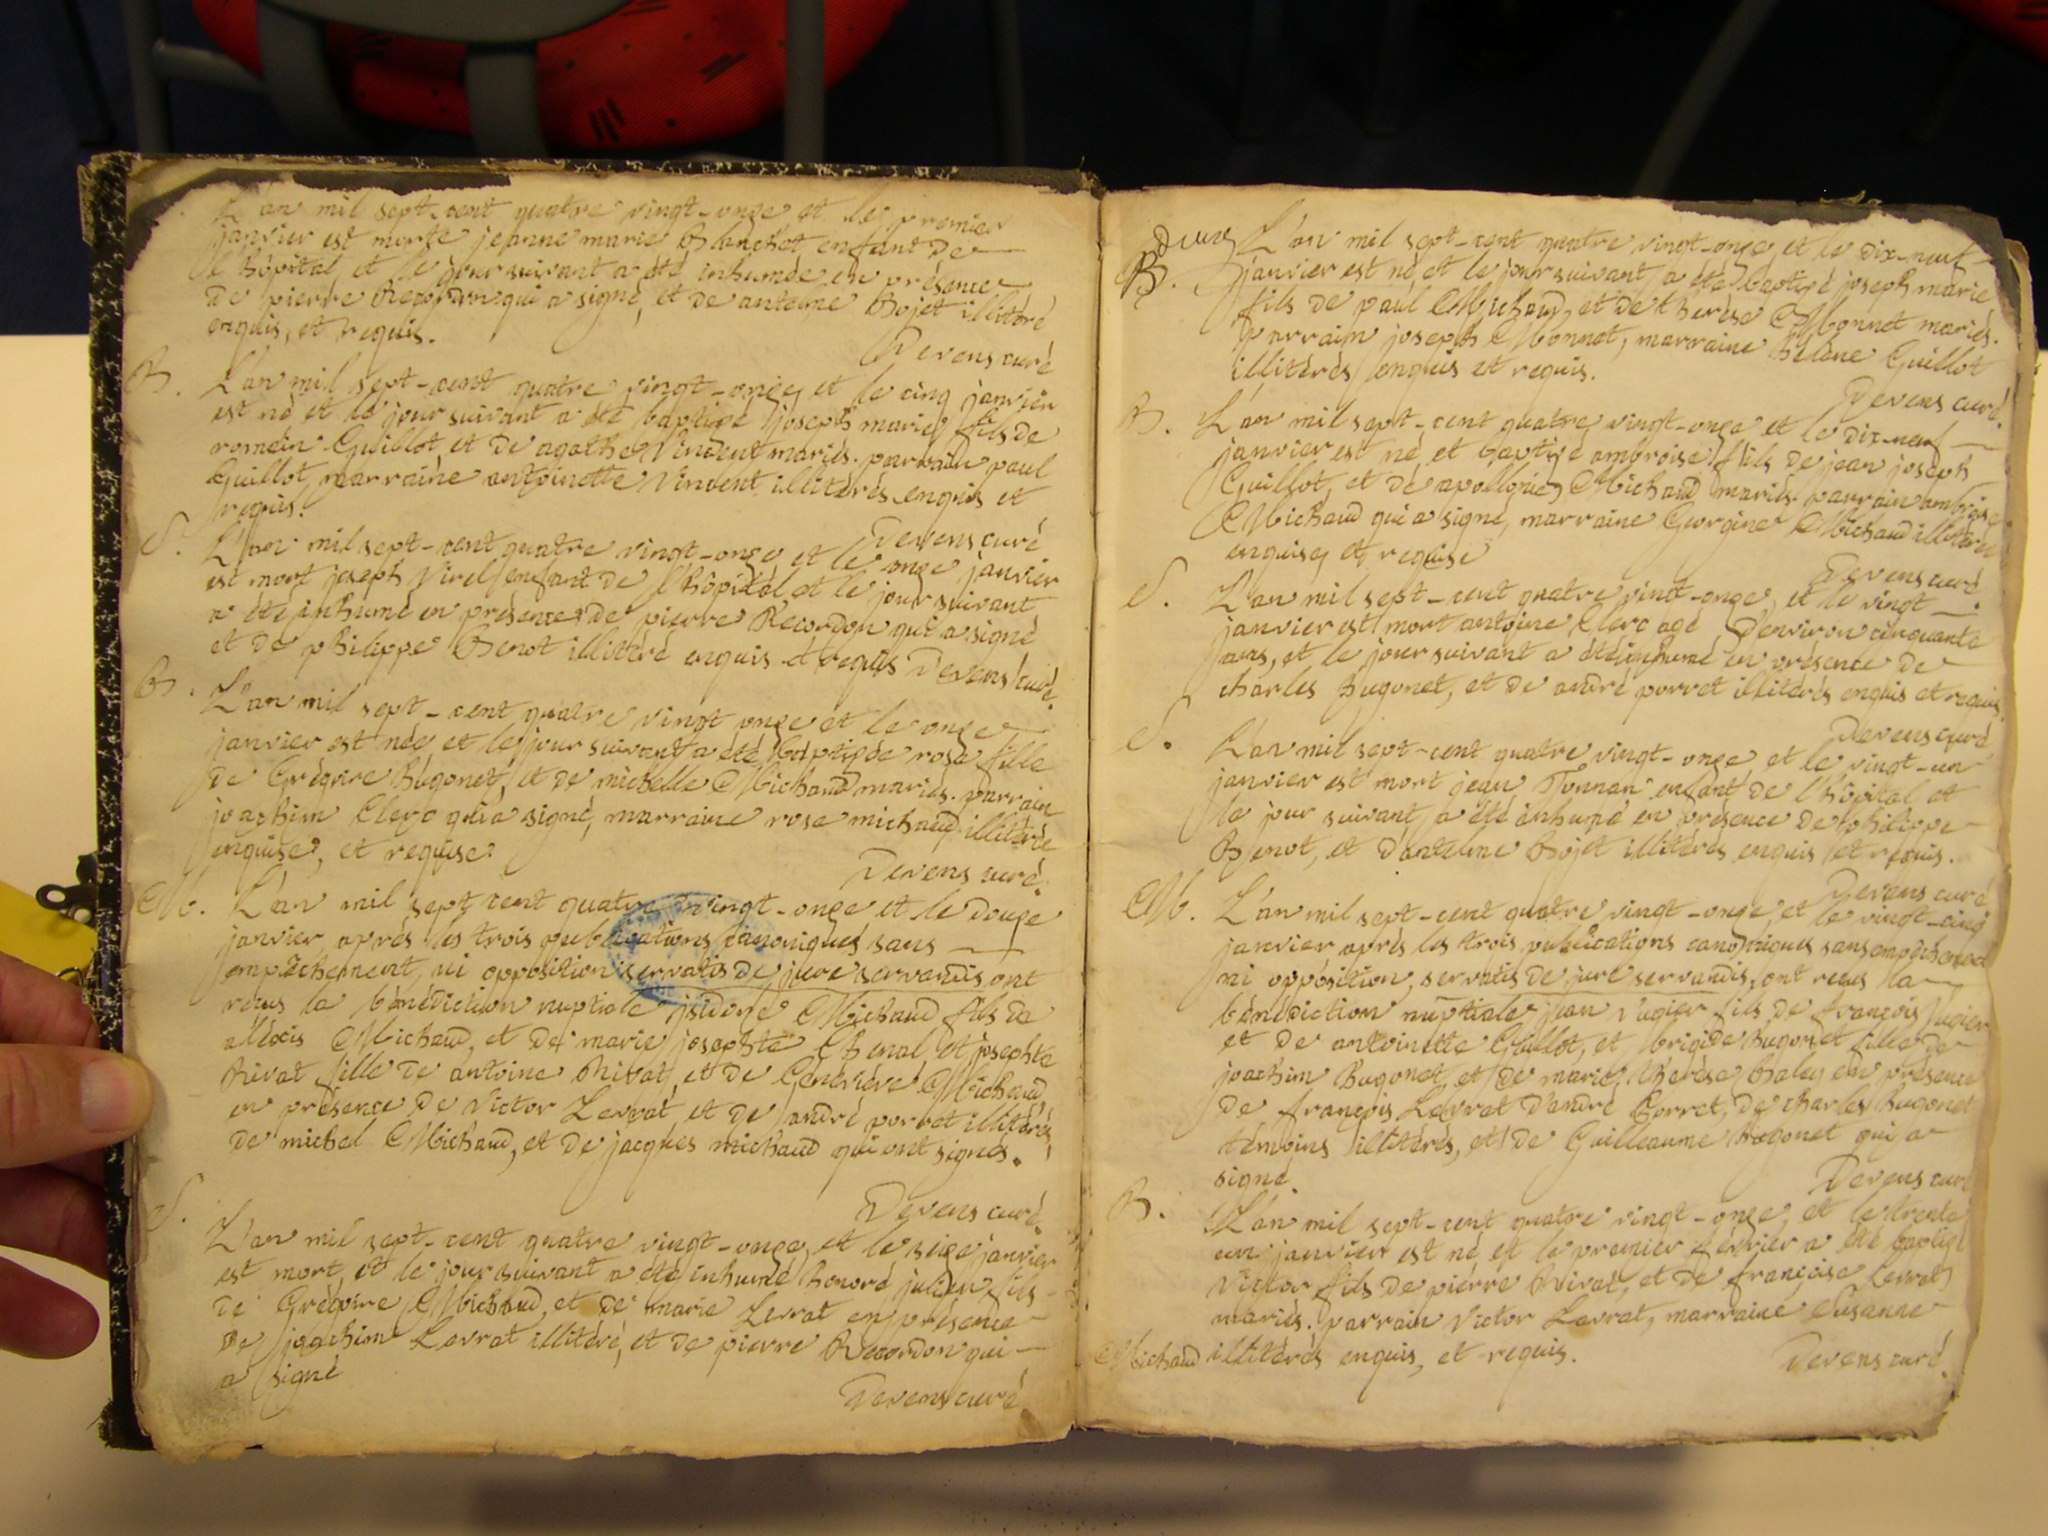 L'an mil sept-cent quatre vingt-onze et le premier
janvier est morte jeanne marie Blanchot enfant de
l'hôpital, et le jour suivant a été inhumée en présence
de pierre Recordon qui a signé, et de antoine Bojet illitéré
enquis, et requis.
Devens curé
B. L'an mil sept-cent quatre vingt-onze et le cinq janvier
est né et le jour suivant a été baptizé joseph marie fils de
romain Guillot, et de agathe Vincent mariés. parrain paul
Guillot, marraine antoinette Vincent illitérés enquis et
requis.
Devens curé
S. L'an mil sept-cent quatre vingt-onze et le onze janvier
est mort joseph Virel enfant de l'hôpital et le jour suivant
a été inhumé en présence de pierre Recordon qui a signé
et de philippe Benot illitéré enquis et requis Devens curé.
B. L'an mil sept-cent quatre vingt onze et le onze
janvier est née et le jour suivant a été baptizée rose fille
de Grégoire Bugonet, et de michelle Michaud mariés. parrain
joachim Clerc qui a signé, marraine rose michaud illitérée
enquise, et requise.
Devens curé.
M. L'an mil sept cent quatre vingt-onze et le douze
janvier après les trois publications canoniques sans
empêchement, ni opposition servatis de jure servandis ont
reçus la bénédiction nuptiale isidore Michaud fils de
aléxis Michaud, et de marie josephte Chenal, et josephte
Rivat fille de antoine Rivat, et de Geneviève Michaud
en présence de Victor Levrat et de andré porret illitérés,
de michel Michaud, et de jacques michaud qui ont signés.
Devens curé.
S. L'an mil sept-cent quatre vingt-onze, et le seize janvier
est mort, et le jour suivant a été inhumé honoré julien fils
de Grégoire Michaud, et de marie Levrat en présence
de joachim Levrat illitéré, et de pierre Recordon qui
a signé
Devens curé
Deux
B. L'an mil sept-cent quatre vingt-onze, et le dix-neuf
janvier est né et le jour suivant a été baptizé joseph marie
fils de paul Michaud, et de thérèse Monnet mariés.
parrain joseph Monnet, marraine hélène Guillot
illitérés enquis et requis.
Devens curé.
B. L'an mil sept-cent quatre vingt-onze et le dix-neuf
janvier est né et baptizé ambroise fils de jean joseph
Guillot, et de apollonie Michaud mariés. parrain ambroise
Michaud qui a signé, marraine Georgine Michaud illitérée
enquise, et requise
Devens curé.
S. L'an mil sept-cent quatre vingt-onze, et le vingt
janvier est mort antoine Clerc agé d'environ cinquante
ans, et le jour suivant a été inhumé en présence de
charles Bugonet, et de andré porret illitérés enquis et requis.
Devens curé
S. L'an mil sept-cent quatre vingt-onze et le vingt-un
janvier est mort jean Tonnan enfant de l'hôpital et
le jour suivant a été inhumé en présence de philippe
Benot, et d'antoine Bojet illitérés enquis et requis.
Devens curé
M. L'an mil sept-cent quatre vingt-onze, et le vingt-cinq
janvier après les trois publications canoniques sans empêchement
ni opposition, servatis de jure servandis, ont reçus la
bénédiction nuptiale jean Jugier fils de françois Jugier
et de antoinette Guillot, et brigide Bugonet fille de
joachim Bugonet, et de marie thérèse en présence
de françois Levrat d'andré Porret, de charles Bugonet
témoins illitérés, et de Guilleaume Bugonet qui a
signé.
Devens curé
B. L'an mil sept-cent quatre vingt-onze, et le trente
un janvier est né et le premier février a été baptizé
Victor fils de pierre Rivat, et de françoise Levrat
mariés. parrain Victor Levrat, marraine Susanne
Michaud illitérés enquis, et requis.
Devens curé.